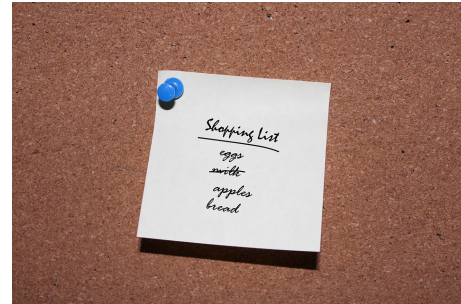 Shopping List
eggs
milk
apples
bread